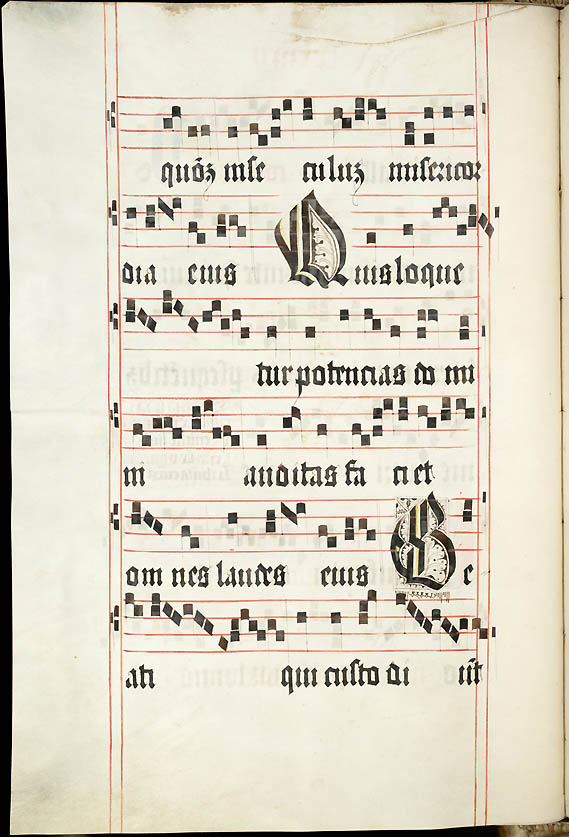 quōꝫ inse culuꝫ misericor
dia eius Quis loque
tur potencias do mi
ni auditas fa ci et
om nes laudes eius Be
ati qui custo di ūt